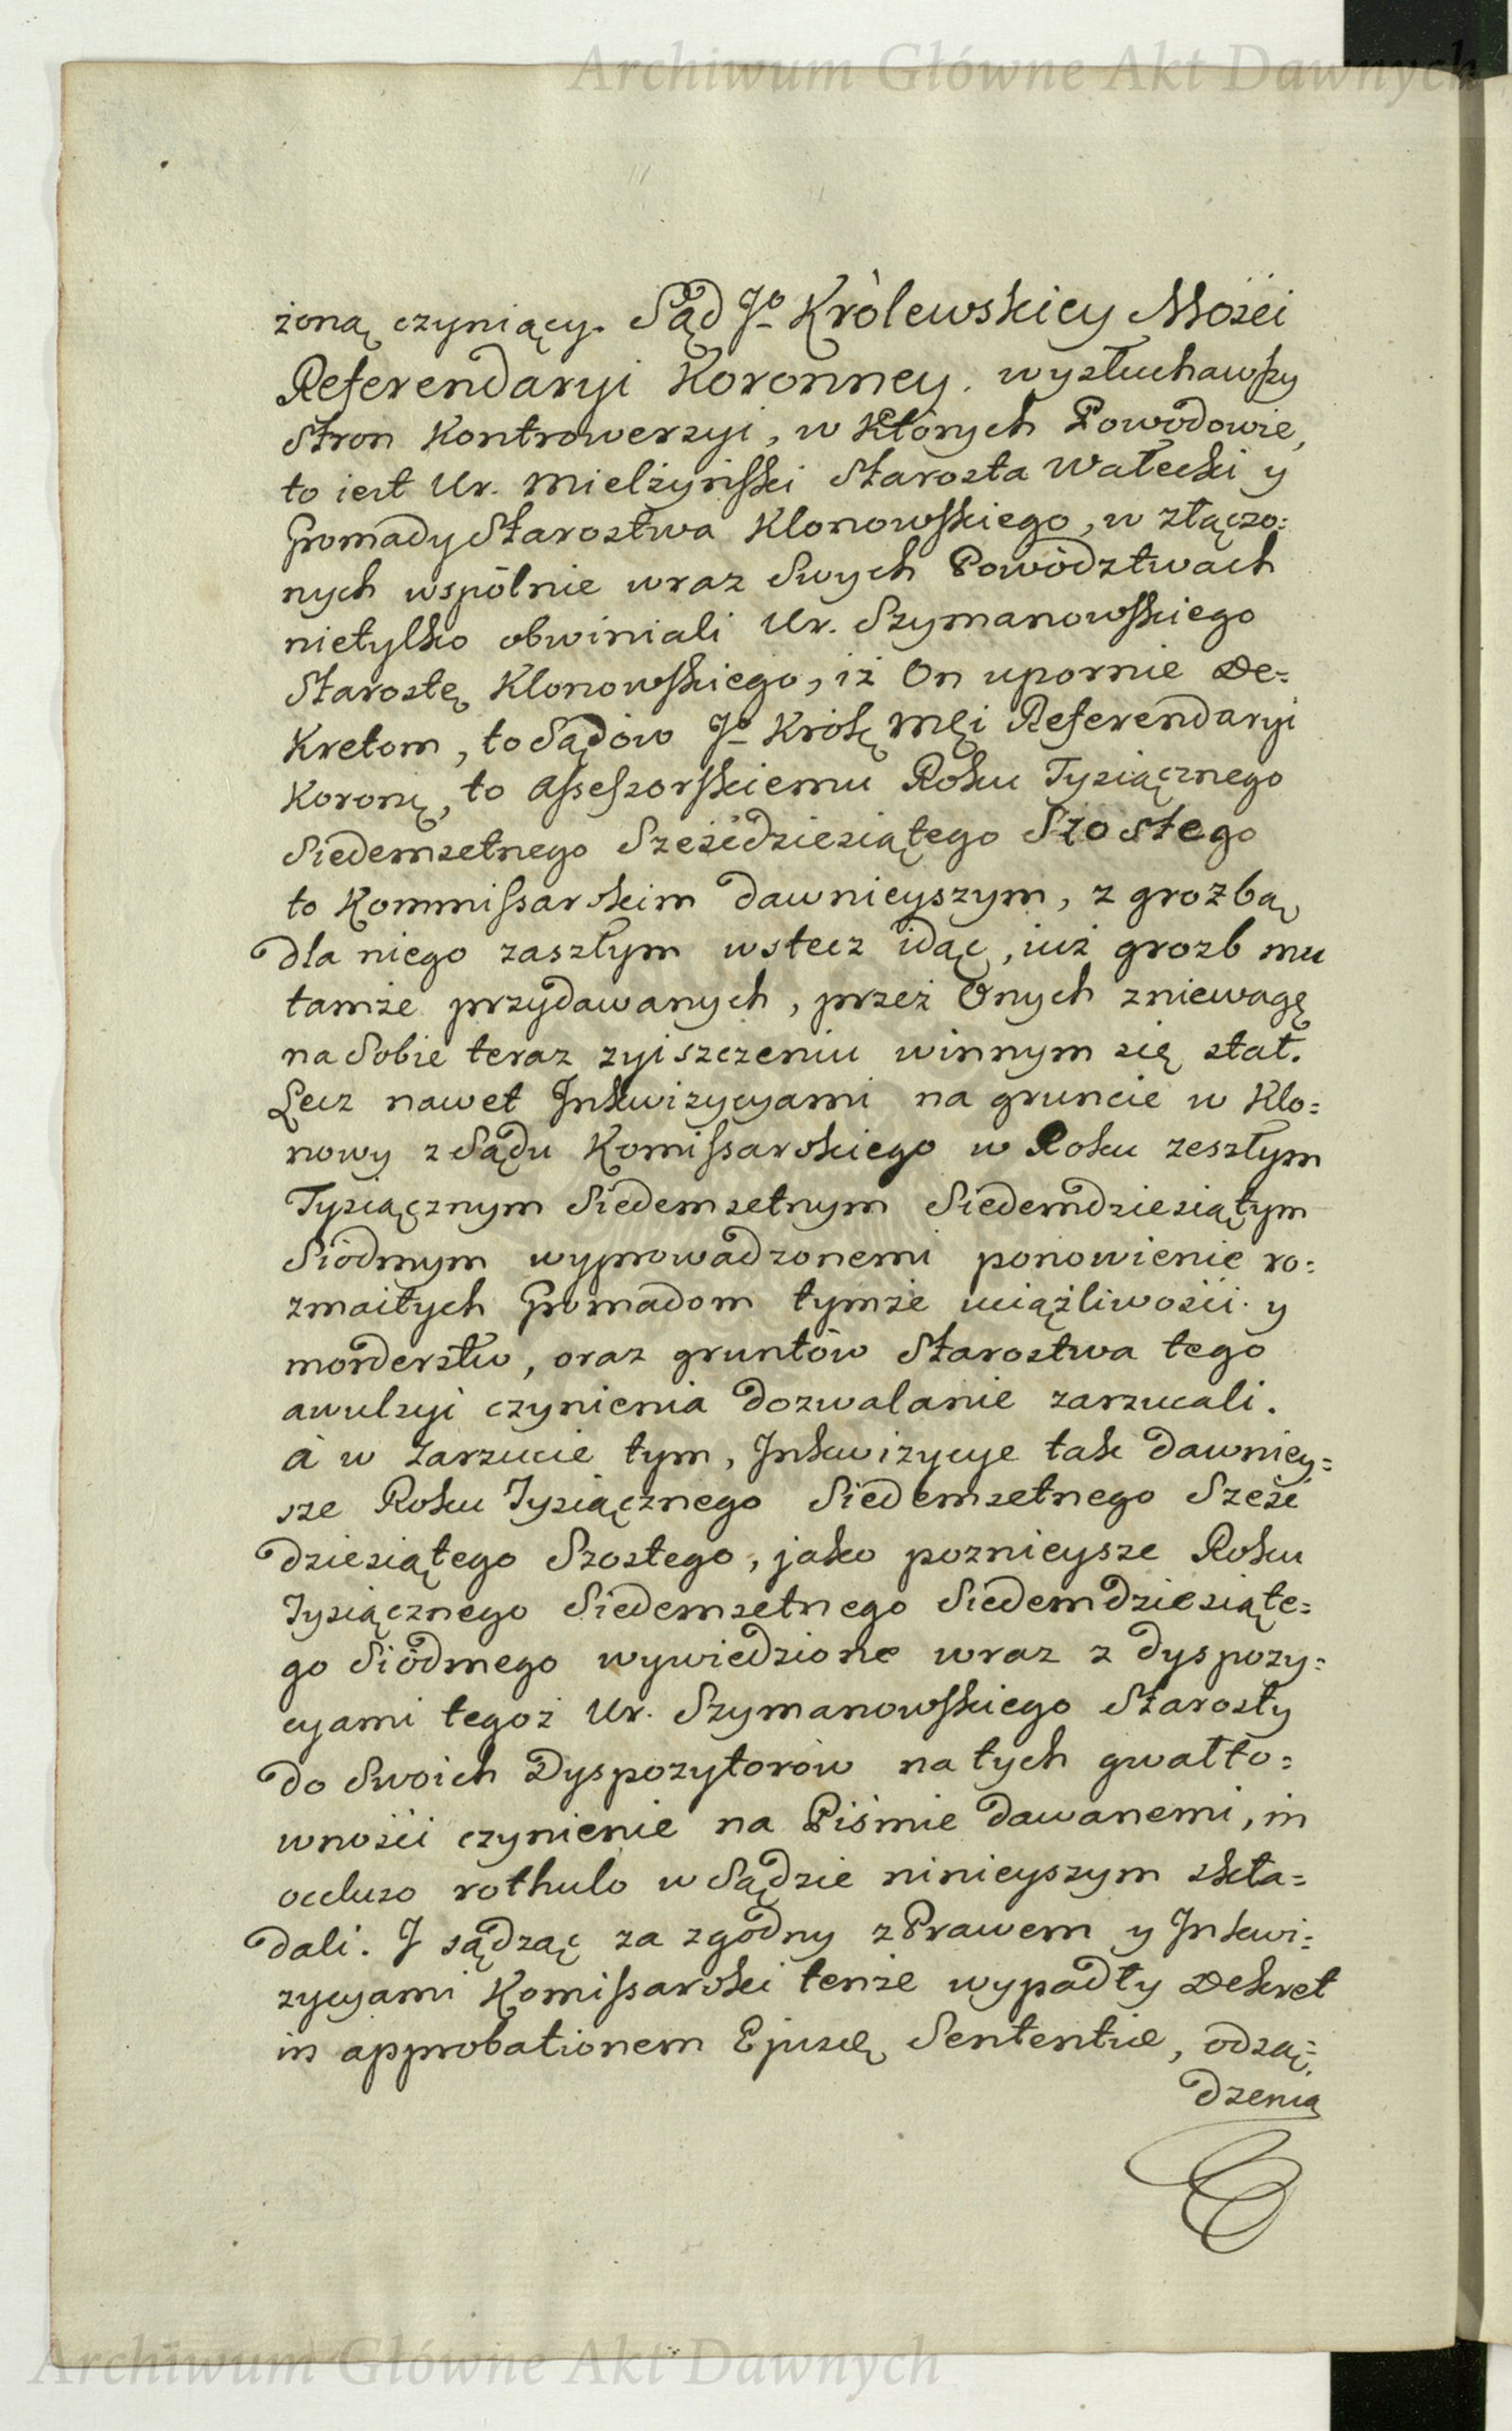 Archiwum Główne Akt Dawnych
żoną czyniący. Sąd Jo Królewskiey Mości
Referendaryi Koronney. wysłuchawszy
Stron Kontrowerzyi, w Których Powodowie,
to iest Ur. Mielżyński Starosta Wałecki y
Gromady Starostwa Klonowskiego, w złączo:
nych wspólnie wraz Swych Powództwach
nietylko obwiniali Ur. Szymanowskiego
Starostę Klonowskiego, iż On upornie De:
Kretom, to Sądow Jo Krolę Mći Referendaryi
Koronę, to Assessorskiemu Roku Tysiącznego
Siedemsetnego Sześćdziesiątego Szostego
to Kommissarskim dawnieyszym, z groźbą
dla niego zaszłym wstecz idąc, iuż grozb mu
tamże przydawanych, przez Onych zniewagę
na Sobie teraz zyiszczeniu winnym się stał.
Lecz nawet Inkwizycyami na gruncie w Klo:
nowy z Sądu Komissarskiego w Roku zeszłym
Tysiącznym Siedemsetnym Siedemdziesiątym
Siodmym wyprowadzonemi ponowienie ro:
zmaitych Gromadom tymże uciążliwości y
morderstw, oraz gruntów Starostwa tego
awulsyi czynienia dozwalanie zarzucali.
à w Zarzucie tym, Inkwizycye tak dawniey:
sze Roku Tysiącznego Siedemsetnego Sześć
dziesiątego Szostego, jako poznieysze Roku
Tysiącznego Siedemsetnego Siedemdziesiąte:
go Siódmego wywiedzione wraz z dyspozy:
cyami tegoż Ur. Szymanowskiego Starosty
do Swoich Dyspozytorów na tych gwałto:
wności czynienie na Piśmie dawanemi, in
occluso rothulo w Sądzie ninieyszym skła:
dali. I sądząc za zgodny z Prawem y Inkwi:
zycyami Komissarski tenże wypadły Dekret
in approbationem Ejusdę Sententiæ, odsą:
dzenia
Archiwum Główne Akt Dawnych